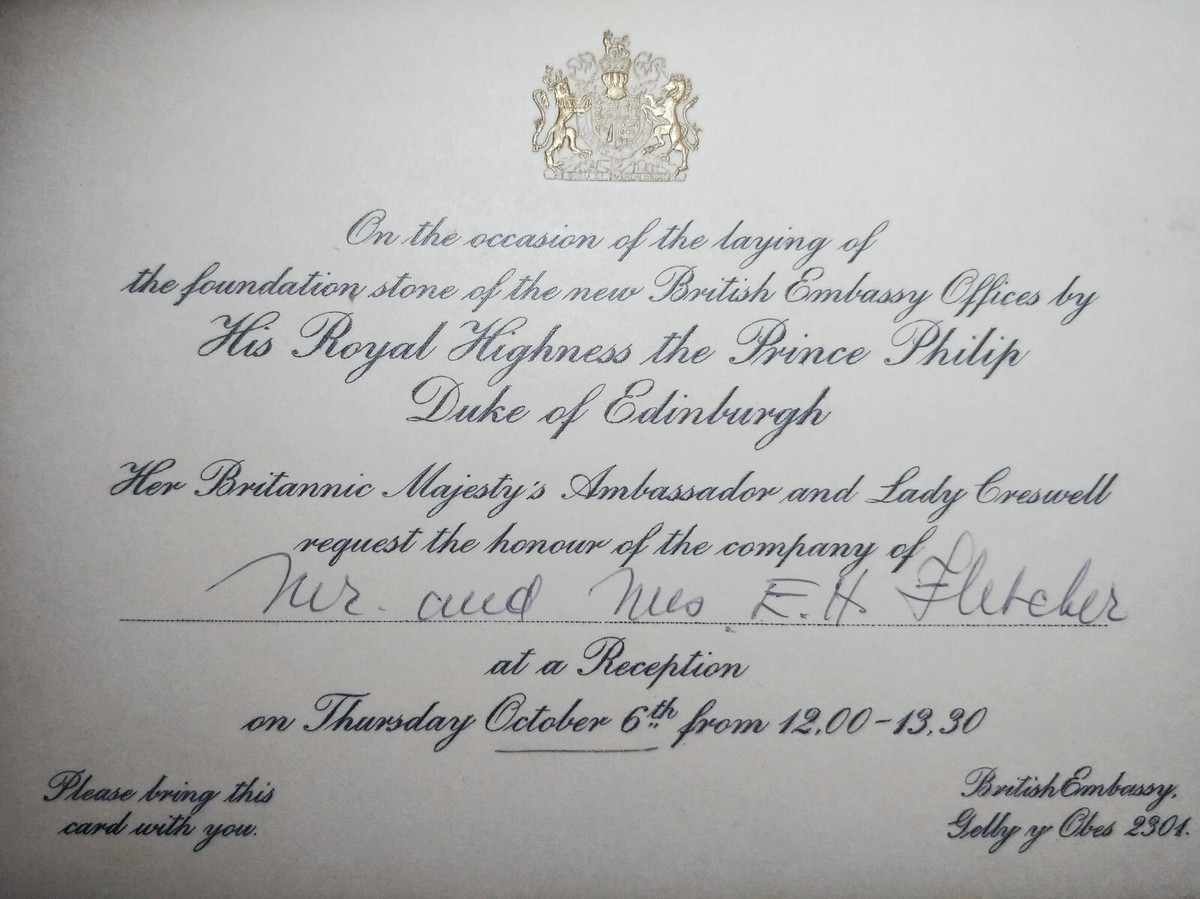 On the occasion of the laying of
the foundation stone of the new British Embassy Offices by
His Royal Highness the Prince Philip
Duke of Edinburgh
Her Britannic Majesty's Ambassador and Lady Creswell
request the honour of the company of
Mr. and Mrs E.H Fletcher
at a Reception
on Thursday October 6th from 12.00-13.30
Please bring this
card with you.
British Embassy.
Gelly y Obes 2301.